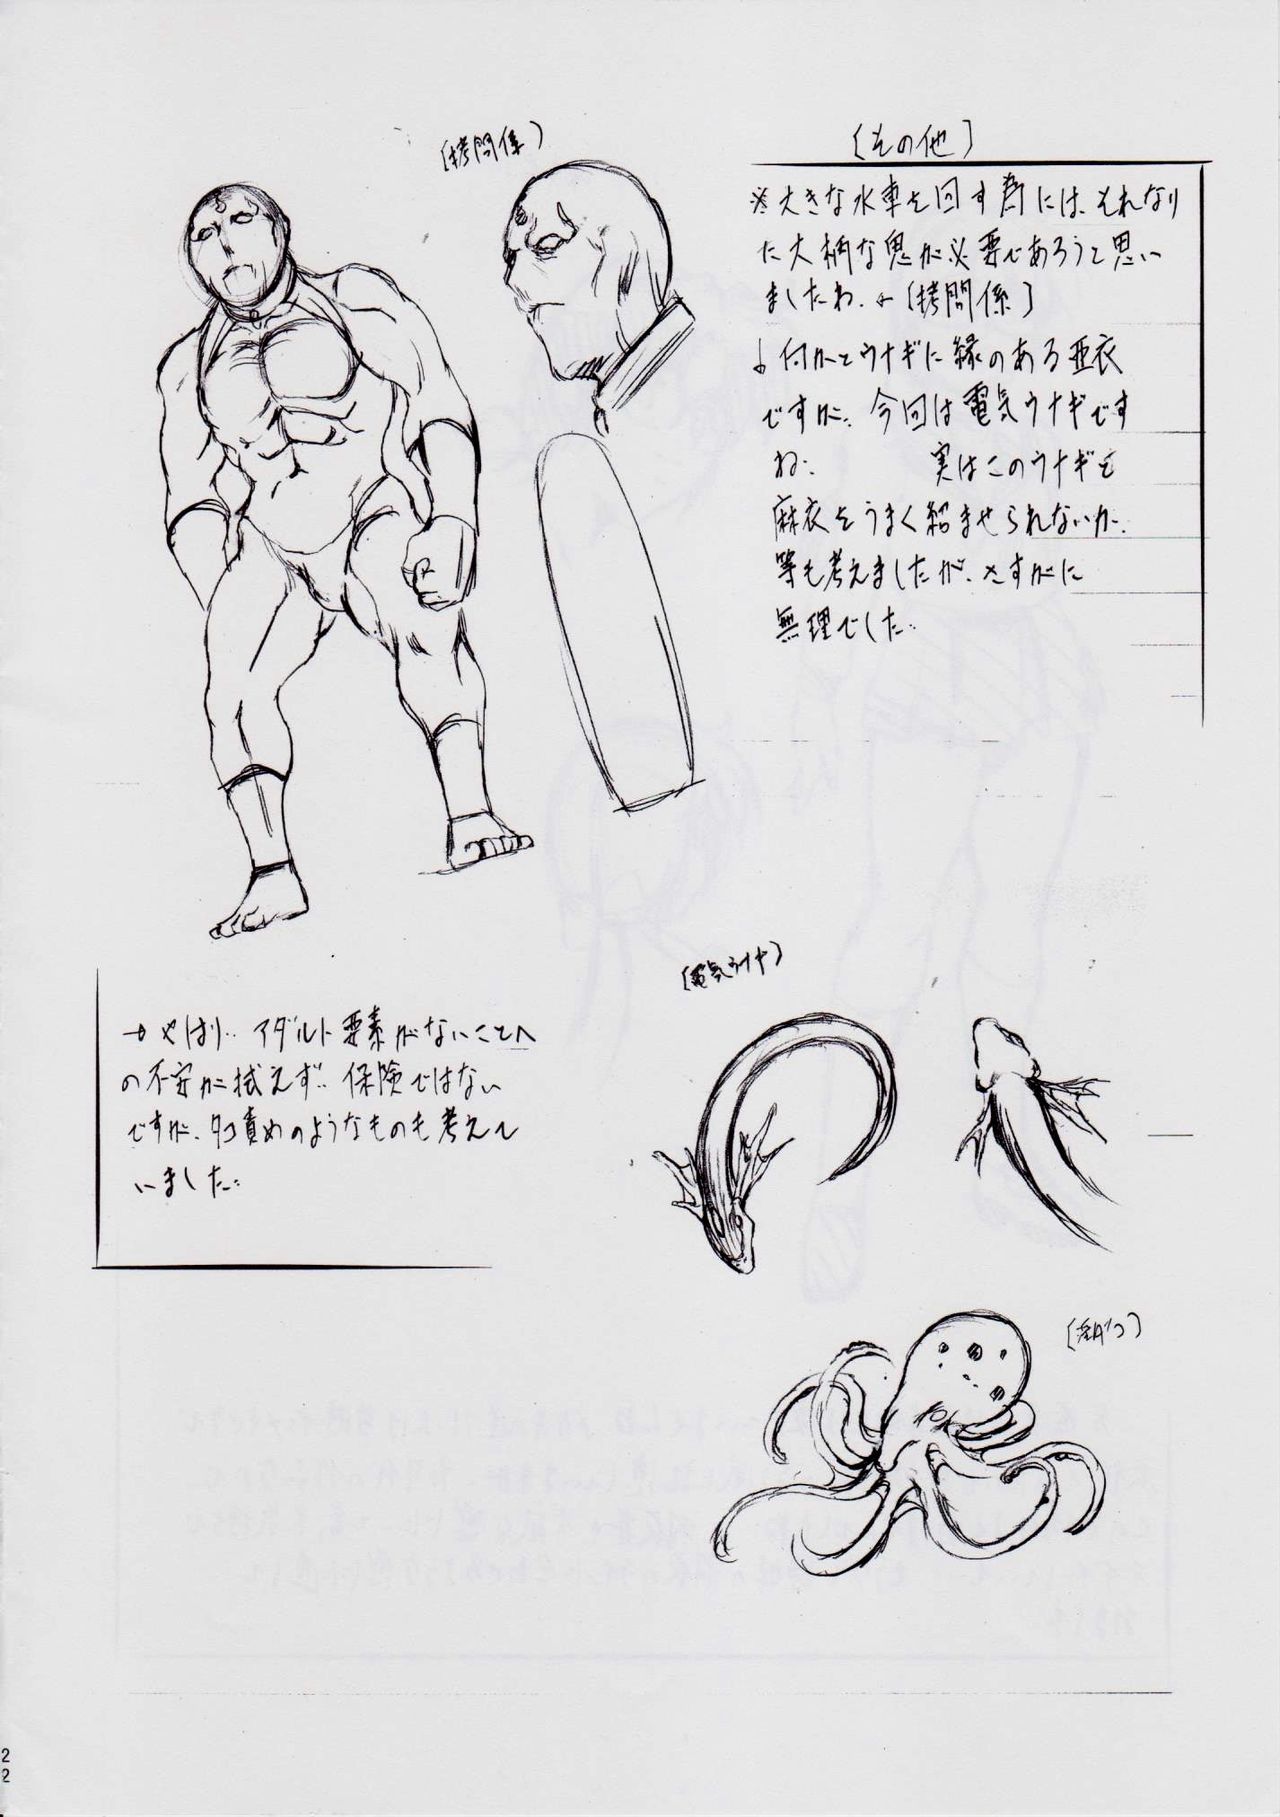 〔その他〕
※大きな水車を回す為には、それなり
た大柄な鬼が必要であろうと思い
ましたわ。←〔拷問係〕
↓何かとウナギに縁のある亜衣
ですが‥今回は電気ウナギです
ね‥ 実はこのウナギを
麻衣をうまく絡ませられないか、
等も考えましたが、さすがに
無理でした‥
〔拷問係〕
〔電気ウナギ〕
→やはり‥アダルト要素がないことへ
の不安が拭えず‥保険ではない
ですが、タコ責めのようなものも考えて
いました‥
〔淫ダコ〕
22